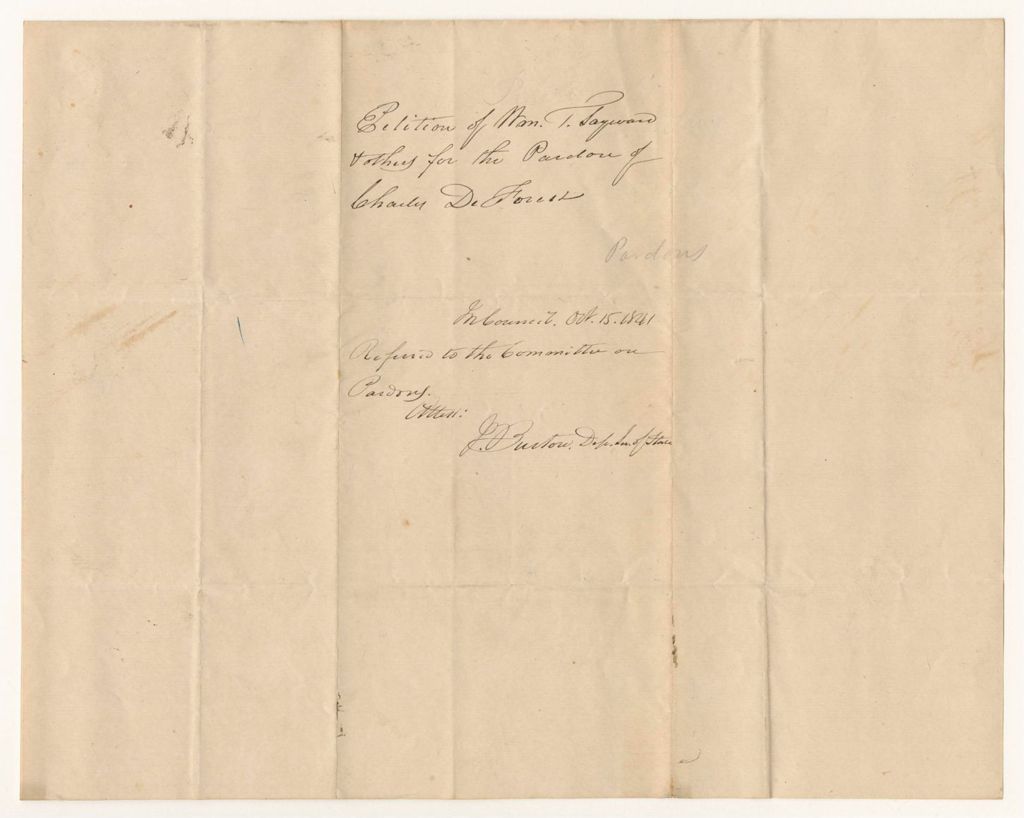 Petition of Wm. T. Sayward
& others for the Pardon of
Charles De Forest
Pardons
In Council. Oct. 15. 1841
Referred to the Committee on
Pardons.
Attest:
J. Burton, Dep. Sec. of State